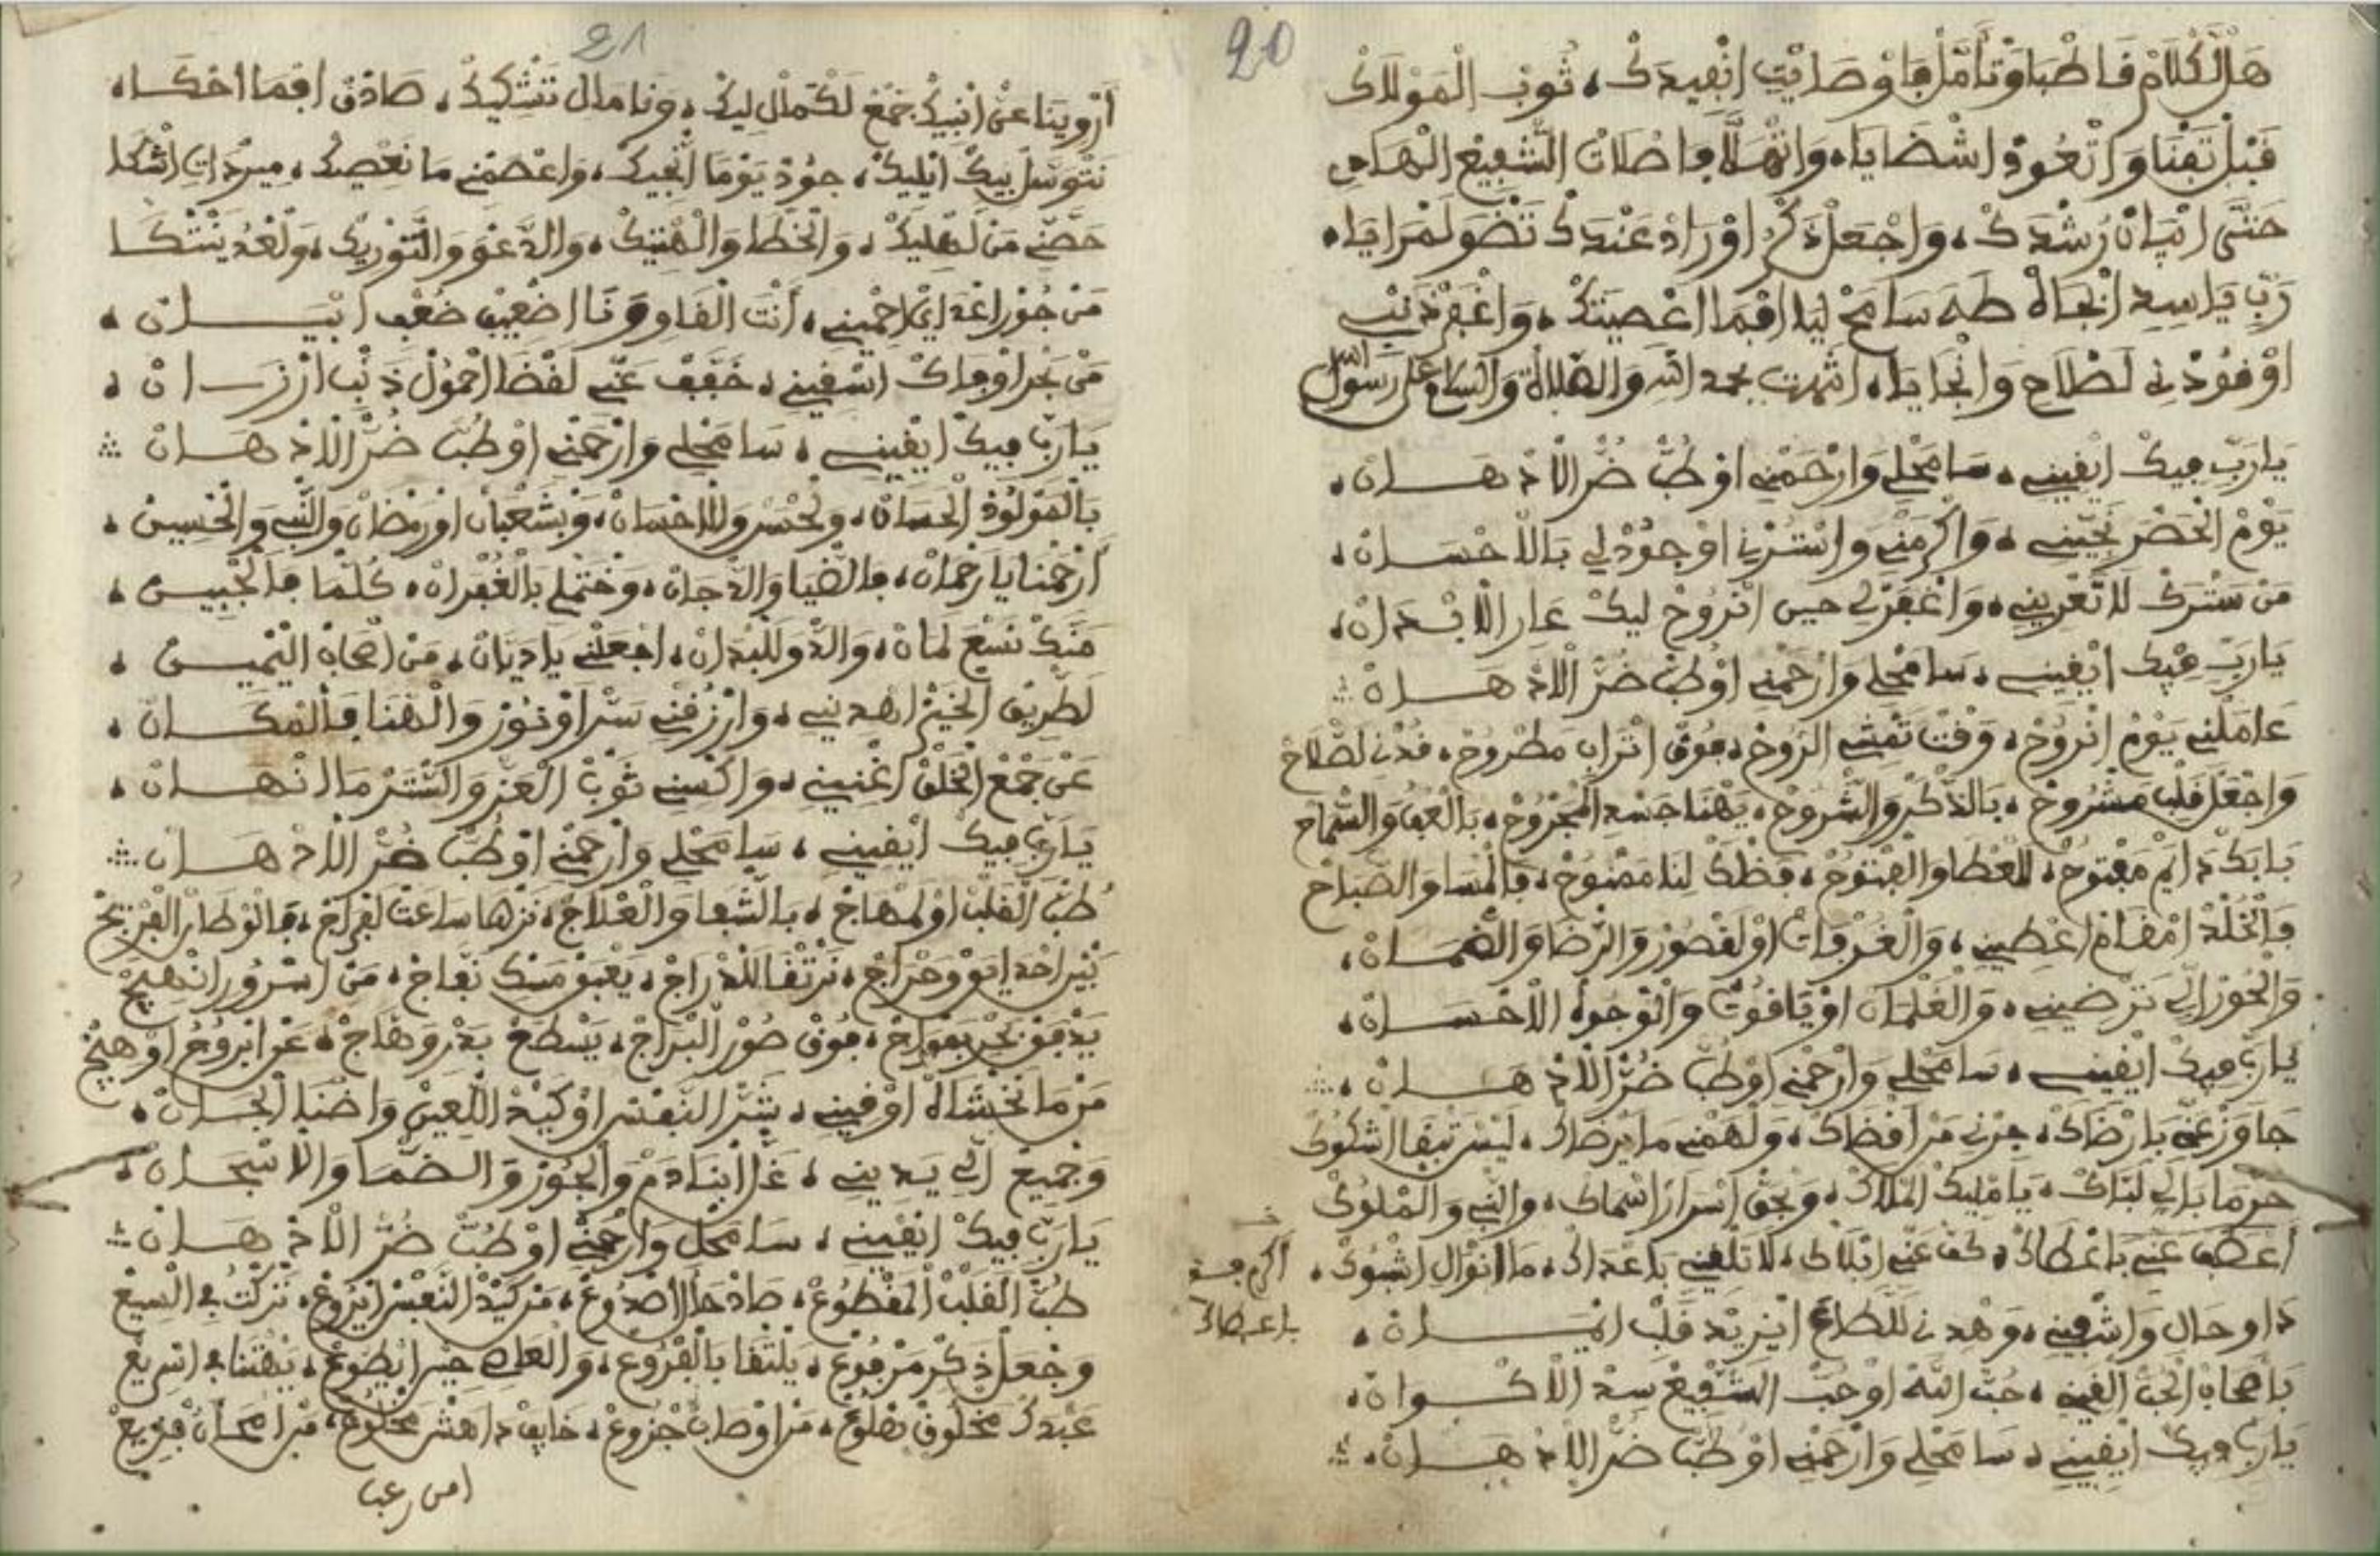 20
هَلْ الْكْلَامْ فَاطْبَاوْ تَأَمَّلْهَا وْصَايْتِ اتْفِيدَكْ، تُوبْ الْمَوْلَاكْ
قَبْلْ تَفْنَا وَاتْعُودْ اشْضَايَا، وَاتْهَلَّا فِاصْلَاتْ الشّفِيعْ الْهَادِي
حَتَّى اتْبَانْ رُشْدَكْ، وَاجْعَلْ ذِكْرْ اوْرَادْ عَنْدَكْ تَضْوَ لَمْرَايَا،
رَبِّ يَاسِيدِ ابْجَاهْ طَهَ سَامَحْ لِيَا افْمَا اعْصِيتَكْ، وَاغْفِرْ ذَنْبِي
اوْفُودْنِي لَصْلَاحْ وَانْجَايَا، انتهت بحمد الله والصلاة والسلام على رسول الله
يَارَبِّ فِيكْ ايْقِينِي، سَامَحْلِي وَارْحَمْنِي اوْطُبّْ ضُرّْ الْاذْهَانْ،
يَوْمْ الْحَضْرْ نَجِّينِي، وَاكْرَمْنِي وَاسْتُرْنِي اوْجُودْلِي بَالْاحْسَانْ،
مَنْ سَتْرَكْ لَا تْعَرِينِي، وَاغْفَرْلِي حِينْ انْرُوحْ لِيكْ عَارِ الْابْدَانْ،
يَارَبِّ فِيكْ ايْقِينِي، سَامَحْلِي وَارْحَمْنِي اوْطُبّْ ضُرّْ الْاذْهَانْ
عَامَلْنِي يَوْمْ انْرُوحْ، وَقْتْ تَمْشِي الرُّوحْ، فُوقْ اتْرَابْ مَطْرُوحْ، قُدْنِي لَصْلَاحْ
وَاجْعَلْ قَلْبِ مَشْرُوحْ، بَالذّكْرْ وَالشّرُوحْ، يَهْنَا جَسْدِ الْمَجْرُوحْ، بَالْعَفُو وَالسّمَاحْ
بَابَكْ دَايَمْ مَفْتُوحْ، لَلْعْطَا وَالْفْتُوحْ، فَضْلَكْ لِنَا مَمْنُوحْ، فَالْمْسَا وَالصّبَاحْ
فَالْخُلْدْ امْقَامْ اعْطِينِي، وَالْغُرْفَاتْ اوْلَقْصُورْ وَالرّضَا وَالضّمَانْ،
وَالْحُورْ الِّي تَرْضِينِي، وَالْغَلْمَانْ اوْيَاقُوتْ وَالْوْجُوهْ الْاحْسَانْ،
يَارَبِّ فِيكْ ايْقِينِي، سَامَحْلِي وَارْحَمْنِي اوْطُبّْ ضُرّْ الْاذْهَانْ،
جَاوَزْ عَنِّي بَارْضَاكْ، جِرْنِي مَنْ اقْضَاكْ، وَلْهَمْنِي مَا يَرْضَاكْ، لِيسْ تَبْقَا اشْكُوكْ
يَامَلِيكْ الْمْلَاكْ، وَبْحَقّْ اسْرَارْ اسْمَاكْ، وَالنّبِي وَالْمْلُوكْ
اعْطَفْ عَنِّي بَاعْطَاكْ، كُفّْ عَنِّي ابْلَاكْ، لَا تَلْقِينِي بَاعْدَاكْ، مَا انْوَالْ اشْبُوكْ،
اكرمني
باعطاك
دَاوِ حَالِ وَاشْفِينِي، وَهْدِنِي لَلطَّاعَ ايْزِيدْ قَلْبِ ايْمَانْ،
حُبّْ اللّٰهْ اوْحُبّْ الشّفِيعْ سِيدْ الْاكْوَانْ،
يَارَبِّ فِيكْ ايْقِينِي، سَامَحْلِي وَارْحَمْنِي اوْطُبّْ ضُرّْ الْاذْهَانْ،
21
ارْوِينَا عَنْ انْبِيكْ جَمْعْ لَكْمَالْ لِيكْ، وَنَا مَالْ تَشْكِيكْ، صَادَقْ افْمَا احْكَا،
نَتْوَسَّلْ بِيكْ الِيكْ، جُودْ يَوْمَا انْجِيكْ، وَاعْصَمْنِي مَا نَعْصِيكْ،
حَصَّنِّي مَنْ لَهْلِيكْ، وَالْخْطَا وَالْهْتِيكْ، وَالدَّعْوَ وَالتّوْرِيكْ، وَلْغْدْ يَنْتْكَا
أَنْتَ الْقَاوِي وَنَا اضْعِيفْ ضُعْفِ ابْيَانْ،
مَنْ بَحْرْ اوْفَاكْ اسْقِينِي، خَفَّفْ عَنِّي لَفْضَا احْمُولْ ذَنْبِ ازْرَانْ،
يَارَبِّ فِيكْ ايْقِينِي، سَامَحْلِي وَارْحَمْنِي اوْطُبّْ ضُرّْ الْاذْهَانْ
بَالْمَوْلُودْ الْحْسَانْ، وَلْحُسْنْ وَالْاحْسَانْ، وَبْشَعْبَانْ اوْرَمْضَانْ وَالنّبِي وَالْحْسِينْ،
ارْحَمْنَا يَارَحْمَانْ، فَالضّيَا وَالدّجَانْ، وَخْتَمْلِي بَالْغُفْرَانْ، كُلّْمَا فَالْجْبِينْ،
مَنَّكْ نَسْعَ لَمَانْ، وَالدّْوَ لَلْبْدَانْ، اجْعَلْنِي يَادِيَّانْ، مَنْ اصْحَابْ الْيْمِينْ،
لَطْرِيقْ الْخِيرْ اهْدِينِي، وَارْزُقْنِي سَرّْ اوْنُورْ وَالْهْنَا فَالْمَكَانْ،
عَنْ جَمْعْ الْخَلْقْ اغْنِينِي، وَاكْسِينِي ثَوْبْ الْعَزّْ وَالسّتَرْ مَا انْهَانْ،
يَارَبِّ فِيكْ ايْقِينِي، سَامَحْلِي وَارْحَمْنِي اوْطُبّْ ضُرّْ الْاذْهَانْ
طُبّْ الْقَلْبْ اوْلَمْهَاجْ، بَالشّفَا وَالْعْلَاجْ، نَزْهَا سَاعَتْ لَفْرَاجْ، فَالْوْطَارْ الْفْرِيجْ
نَرْتْقَا لَلدْرَاجْ، يَعْبَقْ مَسْكِ نَفَّاجْ، مَنْ اسْرُورْ انْهِيجْ
فُوقْ صُورْ الْبْرَاجْ، يَسْطَعْ بَدْرْ وَهَّاجْ،
مَنْ مَا نَخْشَاهْ اوْقِينِي، شَرّْ النَّفْسْ اوْكِيدْ اللّعِينْ وَاضْنَا الْجَانْ،
وَجْمِيعْ الِّي يَدِينِي، وَالْجُورْ وَالضّمَا وَالاسْجَانْ،
يَارَبِّ فِيكْ ايْقِينِي، سَامَحْلِي وَارْحَمْنِي اوْطُبّْ ضُرّْ الْاذْهَانْ
طُبّْ الْقَلْبْ الْمَقْطُوعْ، مَنْ كِيدْ النَّفْسْ ايْرُوعْ،
وَجْعَلْ ذِكْرْ مَرْفُوعْ، يَلْتْقَا بَالْفْرُوعْ، وَالْعَاصِي حِينْ ايْطُوعْ،
عَبْدَكْ مَخْلُوقْ هْلُوعْ، مَنْ اوْصَابْ جْزُوعْ، خَايَفْ
امن رعب